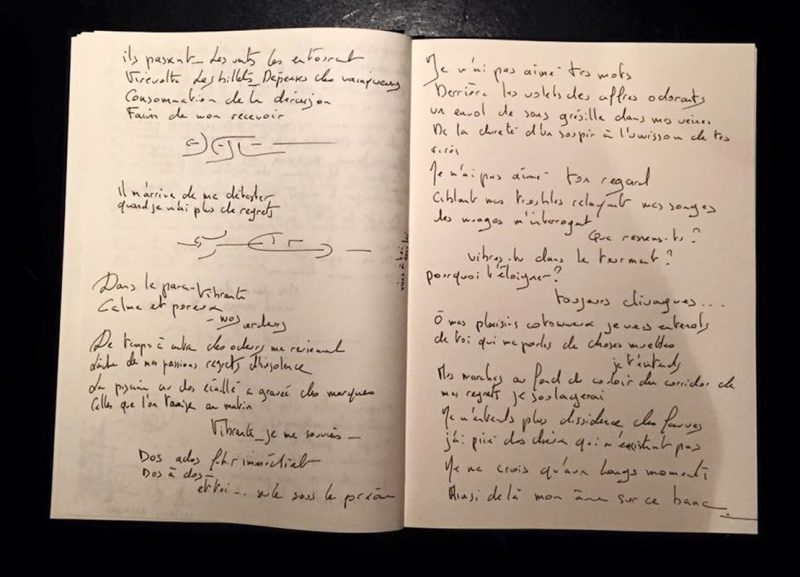 ils passent_ Les vents les
Virevolte Les billets_ Dépenses des vainqueurs
Consommation de la dérision
Faim de mon recevoir
Il m'arrive de me détester
quand je n'ai plus de regrets
Dans le parc - Vibrante
Calme et poreux
- nos ardeurs
De temps à autre des odeurs me reviennent
de mes passions regrets d'insolence
La au dos écaillé a gravé des marques
Celles que l'on au matin
Vibrante_ je me souviens _
Dos ados futur immédiat
Dos à dos _
et toi ... seule sous le préau
Je n'ai pas aimé tes mots
Derrière les volets des affres odorants
un envol de sons grésille dans mes veines
De la dureté d'un soupir à l'unisson de tes
rires
Je n'ai pas aimé ton regard
Ciblant mes troubles relayant mes songes
les nuages m'interrogent
Que ressens-tu ?
vibres-tu dans le tourment ?
pourquoi t'éloigner ?
toujours divagues ...
Ô mes plaisirs cotonneux je vous entends
de toi qui me parles de choses muettes
je t'entends
Mes marches au fond du couloir du corridor de
mes regrets je soulagerai
Je n'entends plus dissidence des fauves
j'ai prié des dieux qui n'existent pas
Je ne crois qu'aux longs moments
Ainsi de là mon âme sur ce banc